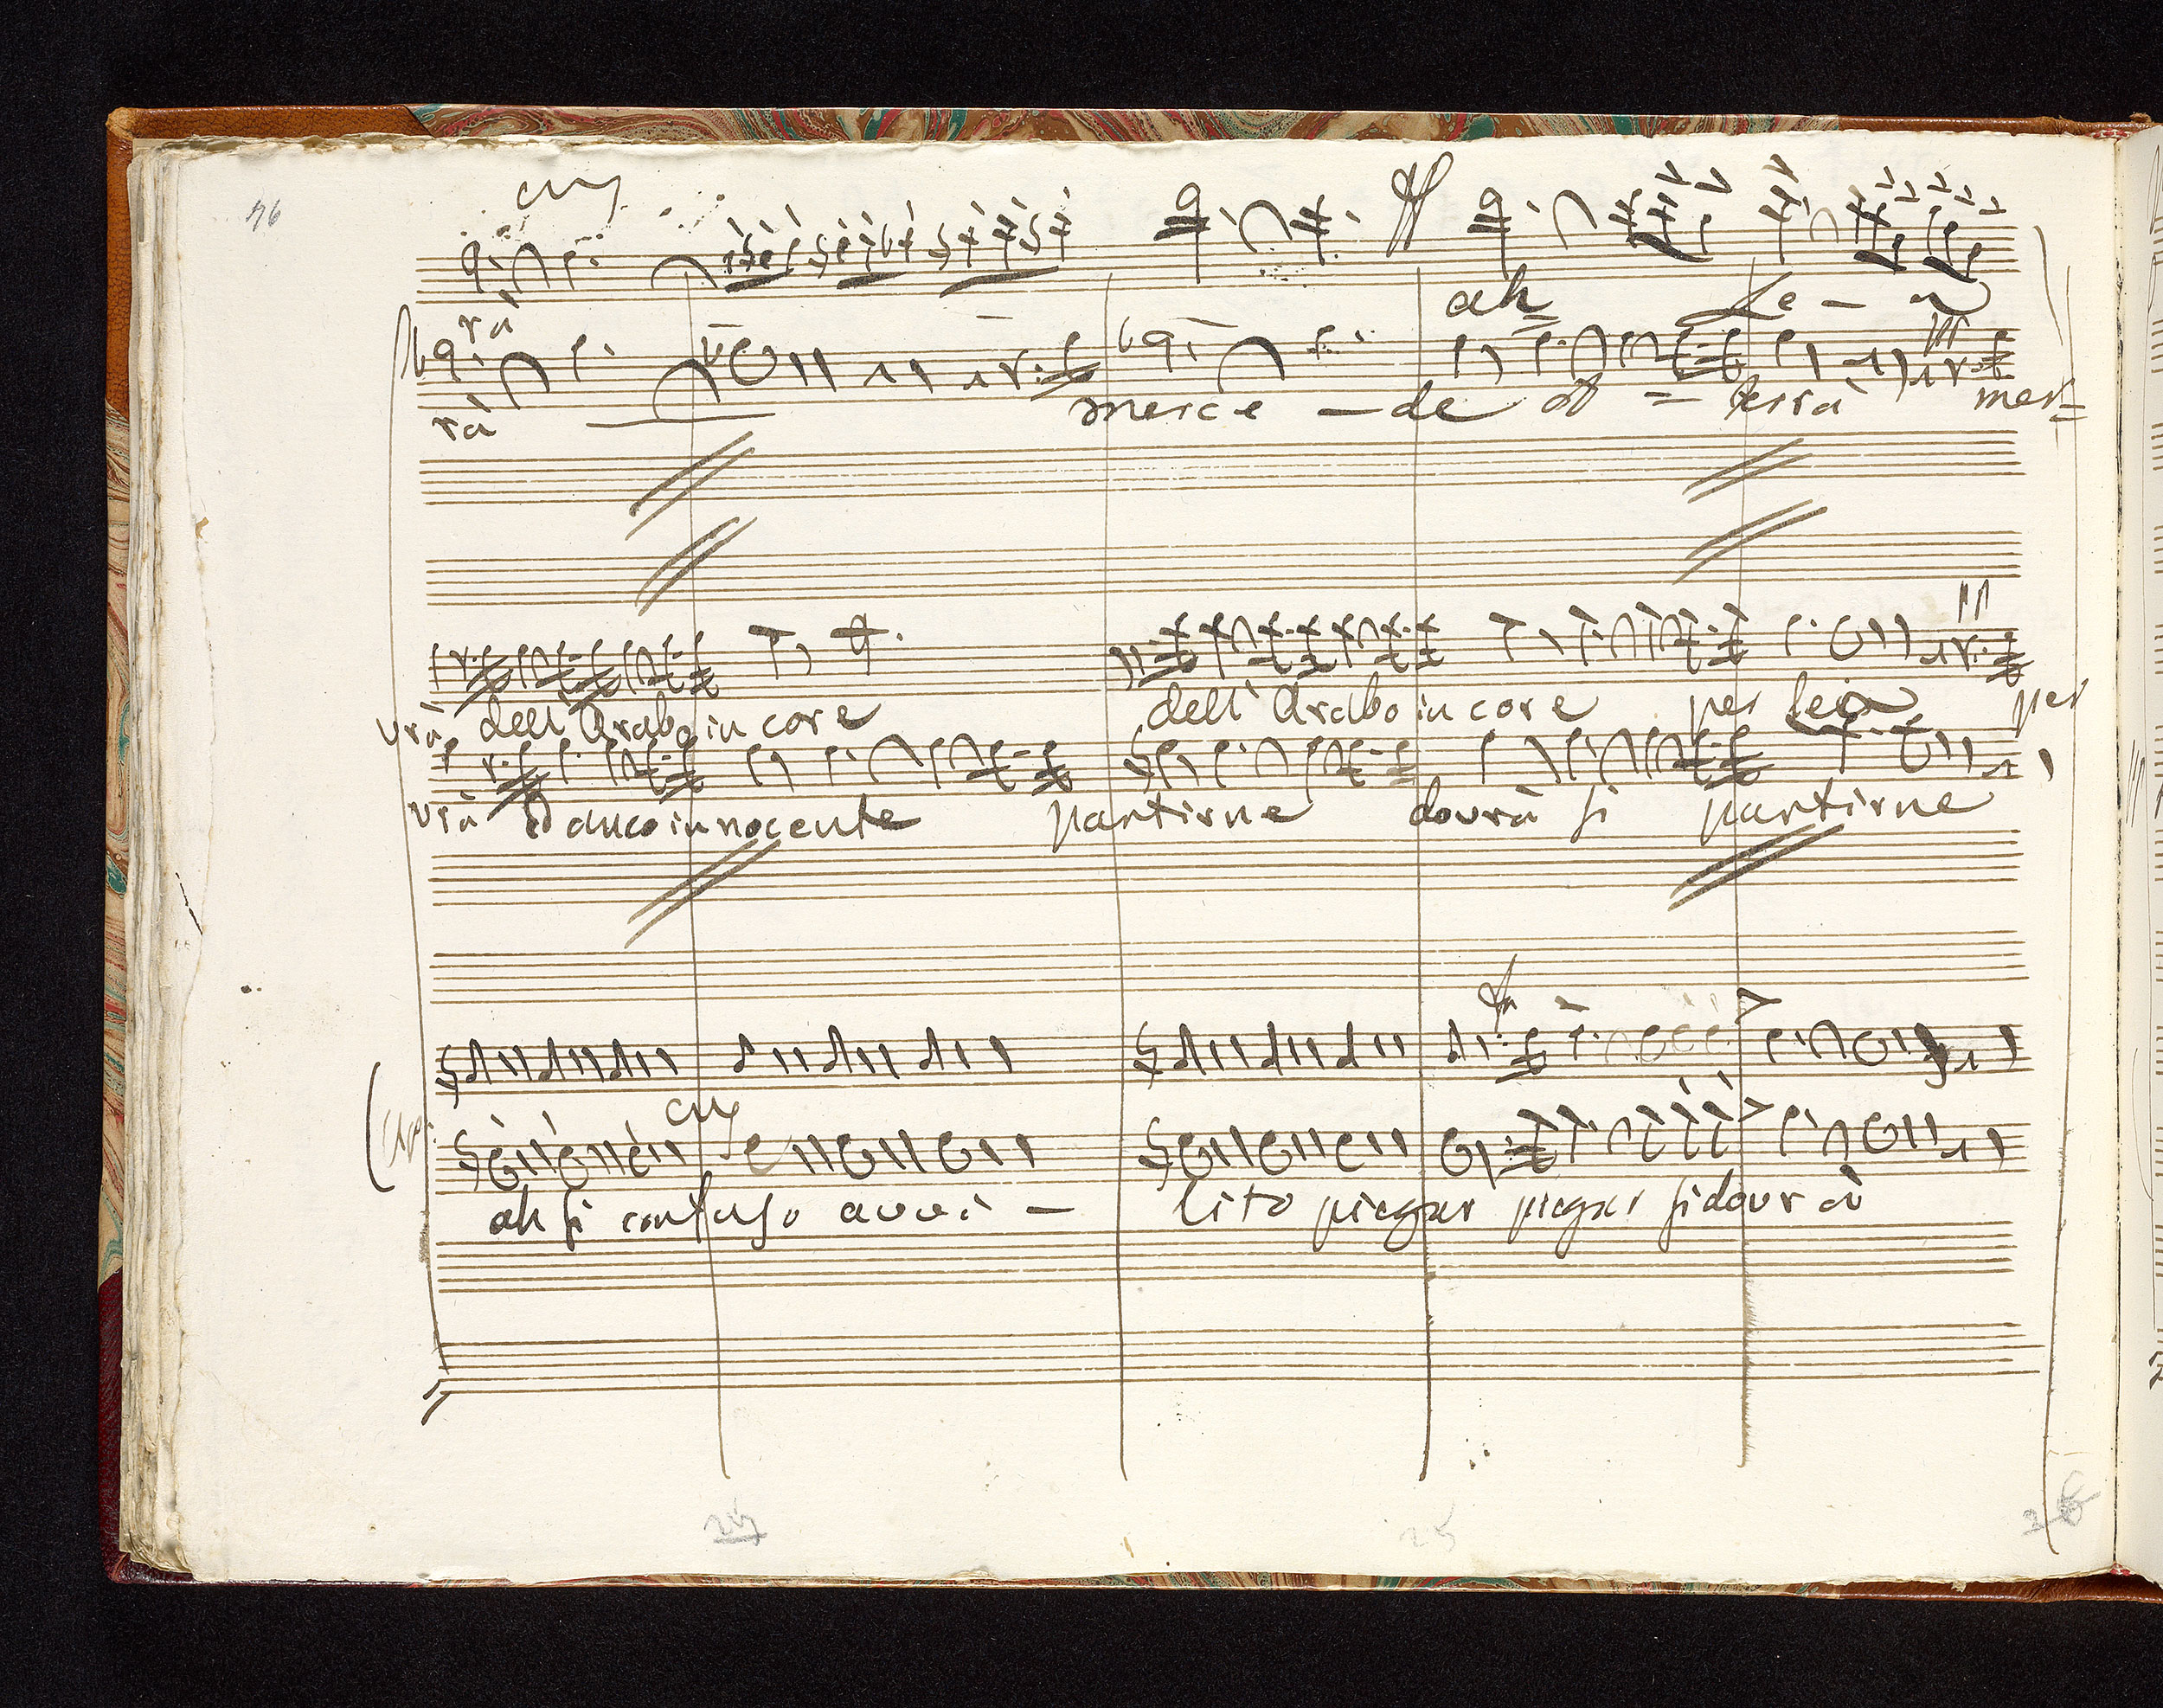 76
ff
ah Le - a
rà
rà merce - de ot = terrà mer=
vrà dell' Arabo in core dell' Arabo in core per lei per
vrà Ed anco innocente partirne dovrà si partirne
ah si confuso avvi - lito piegar piegar si dovrà
24 25 26